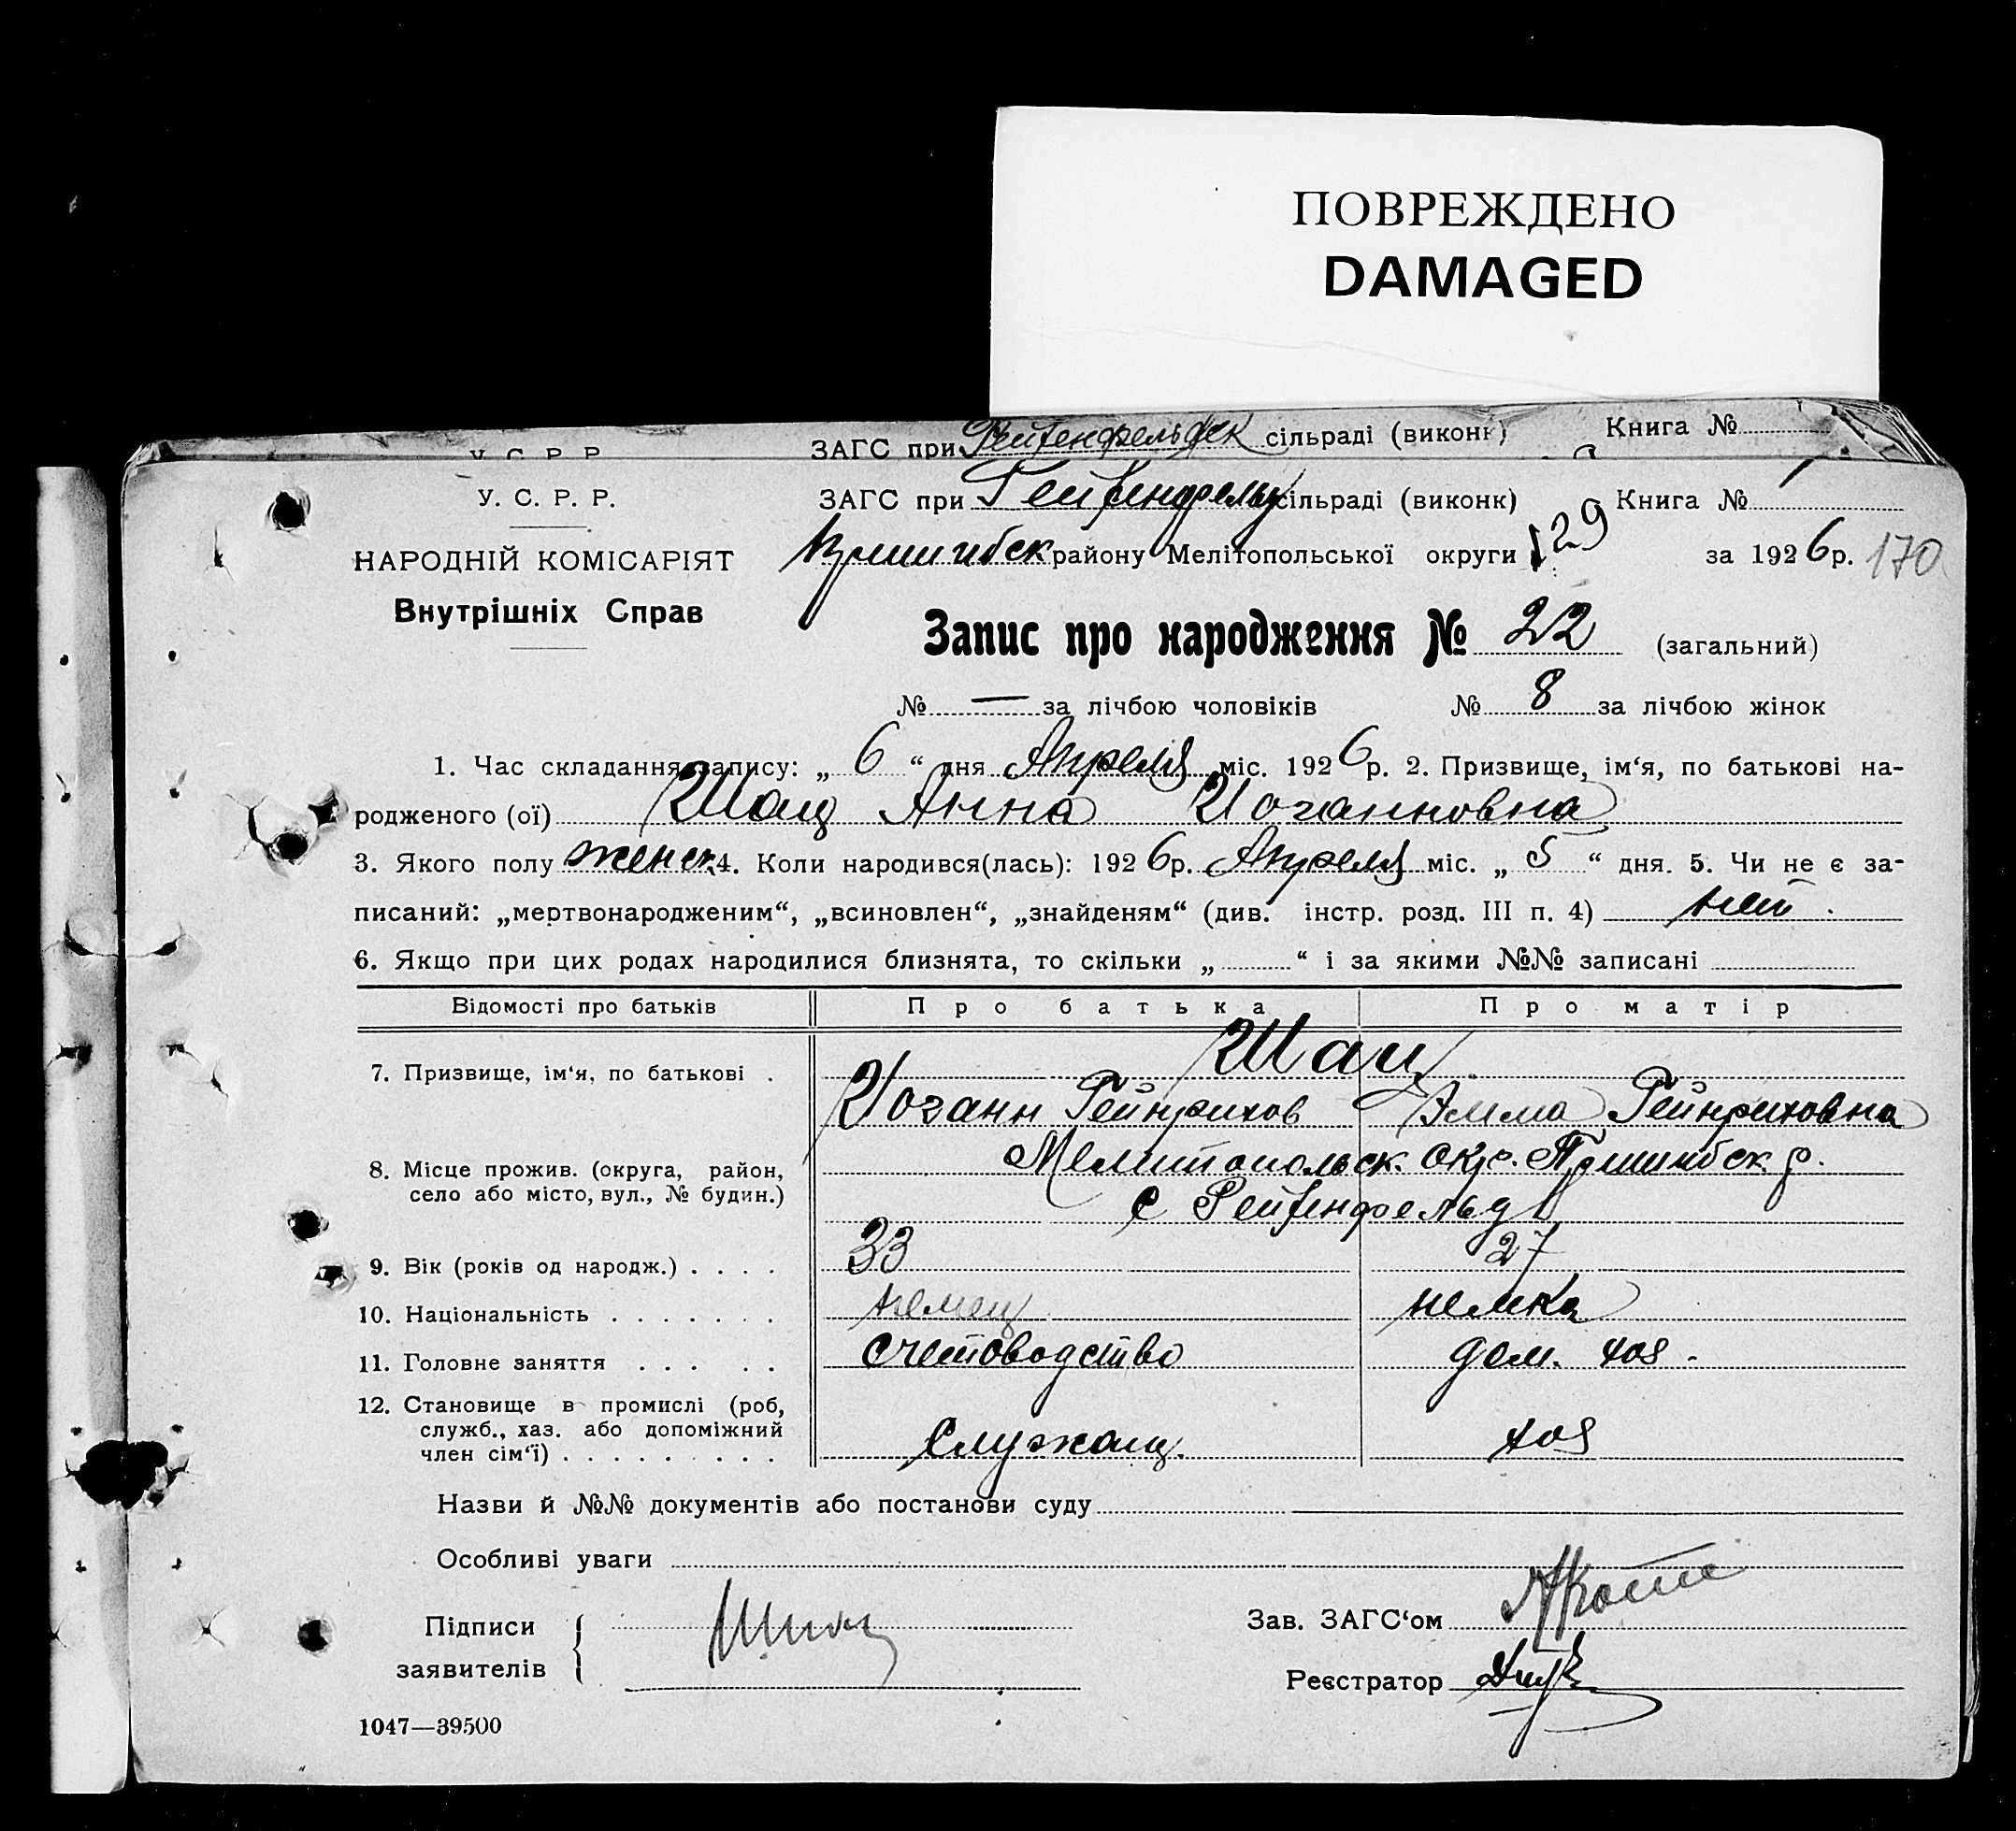 ПОВРЕЖДЕНО
DAMAGED
У. С. Р. Р. ЗАГС при Рейхенфельдск сільраді (виконк) Книга №
У. С. Р. Р. ЗАГС при Рейхенфельд сільраді (виконк) Книга № 1
НАРОДНІЙ КОМІСАРІЯТ Пришибск району Мелітопольської округи 129 за 1926 р. 170
Внутрішніх Справ
Запис про народження № 22 (загальний)
№ — за лічбою чоловіків № 8 за лічбою жінок
1. Час складання запису: „ 6 “ дня Апреля міс. 1926 р. 2. Призвище, ім‘я, по батькові на-
родженого (ої) Шац Анна Иоганновна
3. Якого полу женск. 4. Коли народився(лась): 1926 р. Апреля міс. „ 5 “ дня. 5. Чи не є за-
писаний: „мертвонародженим“, „всиновлен“, „знайденям“ (див. інстр. розд. III п. 4) нет.
6. Якщо при цих родах народилися близнята, то скільки „ “ і за якими №№ записані
Відомості про батьків Про батька Про матір
Шац
7. Призвище, ім‘я, по батькові .
Иоганн Гейнрихов Эмма Гейнриховна
8. Місце прожив. (округа, район, Мелитопольск. окр. Пришибск. р.
село або місто, вул., № будин.) с Рейхенфельд
9. Вік (років од народж.) . . . . 33 27
10. Національність . . . . . . . немец немка
11. Головне заняття . . . . . счетоводство дом. хоз.
12. Становище в промислі (роб,
служб., хаз. або допоміжний
член сім‘ї) . . . . . . . . . служащ. хоз
Назви й №№ документів або постанови суду
Особливі уваги
Підписи Зав. ЗАГС‘ом
заявителів Реєстратор
1047—39500